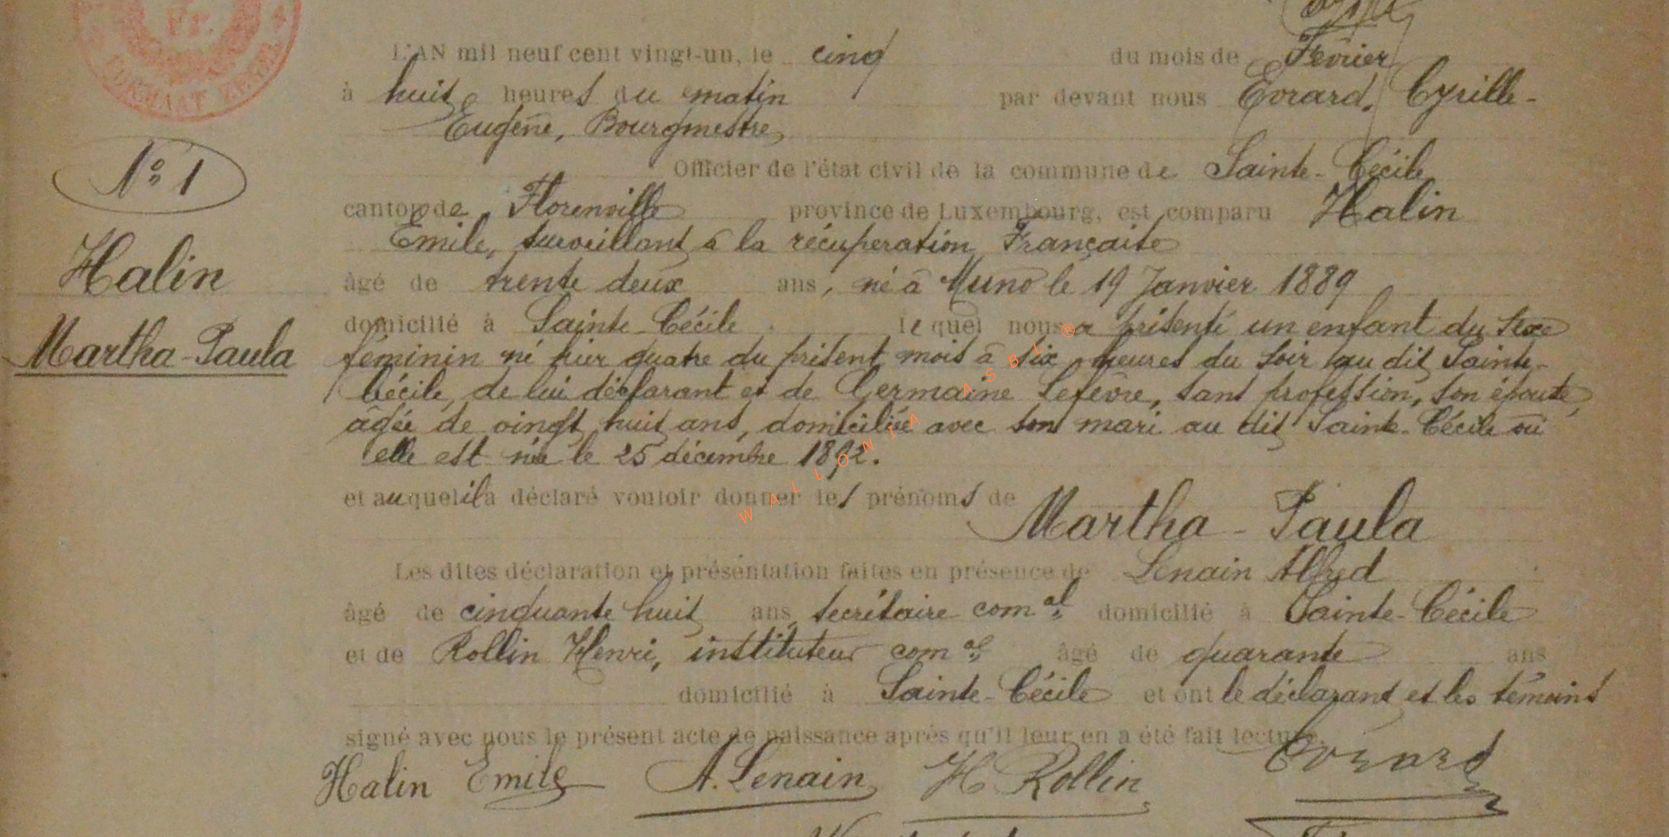 L'AN mil neuf cent vingt-un, le cinq du mois de Février
à huit heures du matin par devant nous Evrard, Cyrille-
Eugène, Bourgmestre,
Officier de l'état civil de la commune de Sainte-Cécile
canton de Florenville province de Luxembourg, est comparu Halin
Emile, surveillant à la récupération Française
âgé de trente deux ans, né à Muno le 19 Janvier 1889
domicilié à Sainte-Cécile lequel nous a présenté un enfant du sexe
féminin né hier quatre du présent mois à six heures du soir au dit Sainte-
Cécile, de lui déclarant et de Germaine Lefèvre, sans profession, son épouse,
âgée de vingt huit ans, domiciliée avec son mari au dit Sainte-Cécile où
elle est née le 25 décembre 1892.
et auquel il a déclaré vouloir donner les prénoms de
Martha-Paula
Les dites déclaration et présentation faites en présence de Lenain Alfred
âgé de cinquante huit ans, secrétaire com.al domicilié à Sainte-Cécile
et de Rollin Henri, instituteur com.al âgé de quarante ans
domicilié à Sainte-Cécile et ont le déclarant et les témoins
signé avec nous le présent acte de naissance après qu'il leur en a été fait lecture.
Halin Emile A. Lenain H Rollin Evrard
N° 1
Halin
Martha-Paula
WALLONIA ASBL